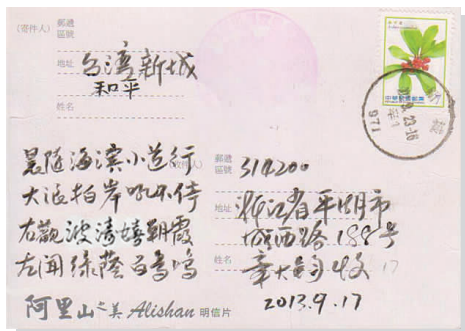 (寄件人)
郵遞區號
地址
台湾新城
和平
姓名
晨随海滨小道行
大浪拍岸吼不停
右觀波涛嬉朝霞
左闻绿蔭百鸟鳴
(收件人)
郵遞區號
314200
地址
浙江省平湖市
城西路188号
姓名
章大鈞收
2013.9.17
阿里山之美 Alishan 明信片
971